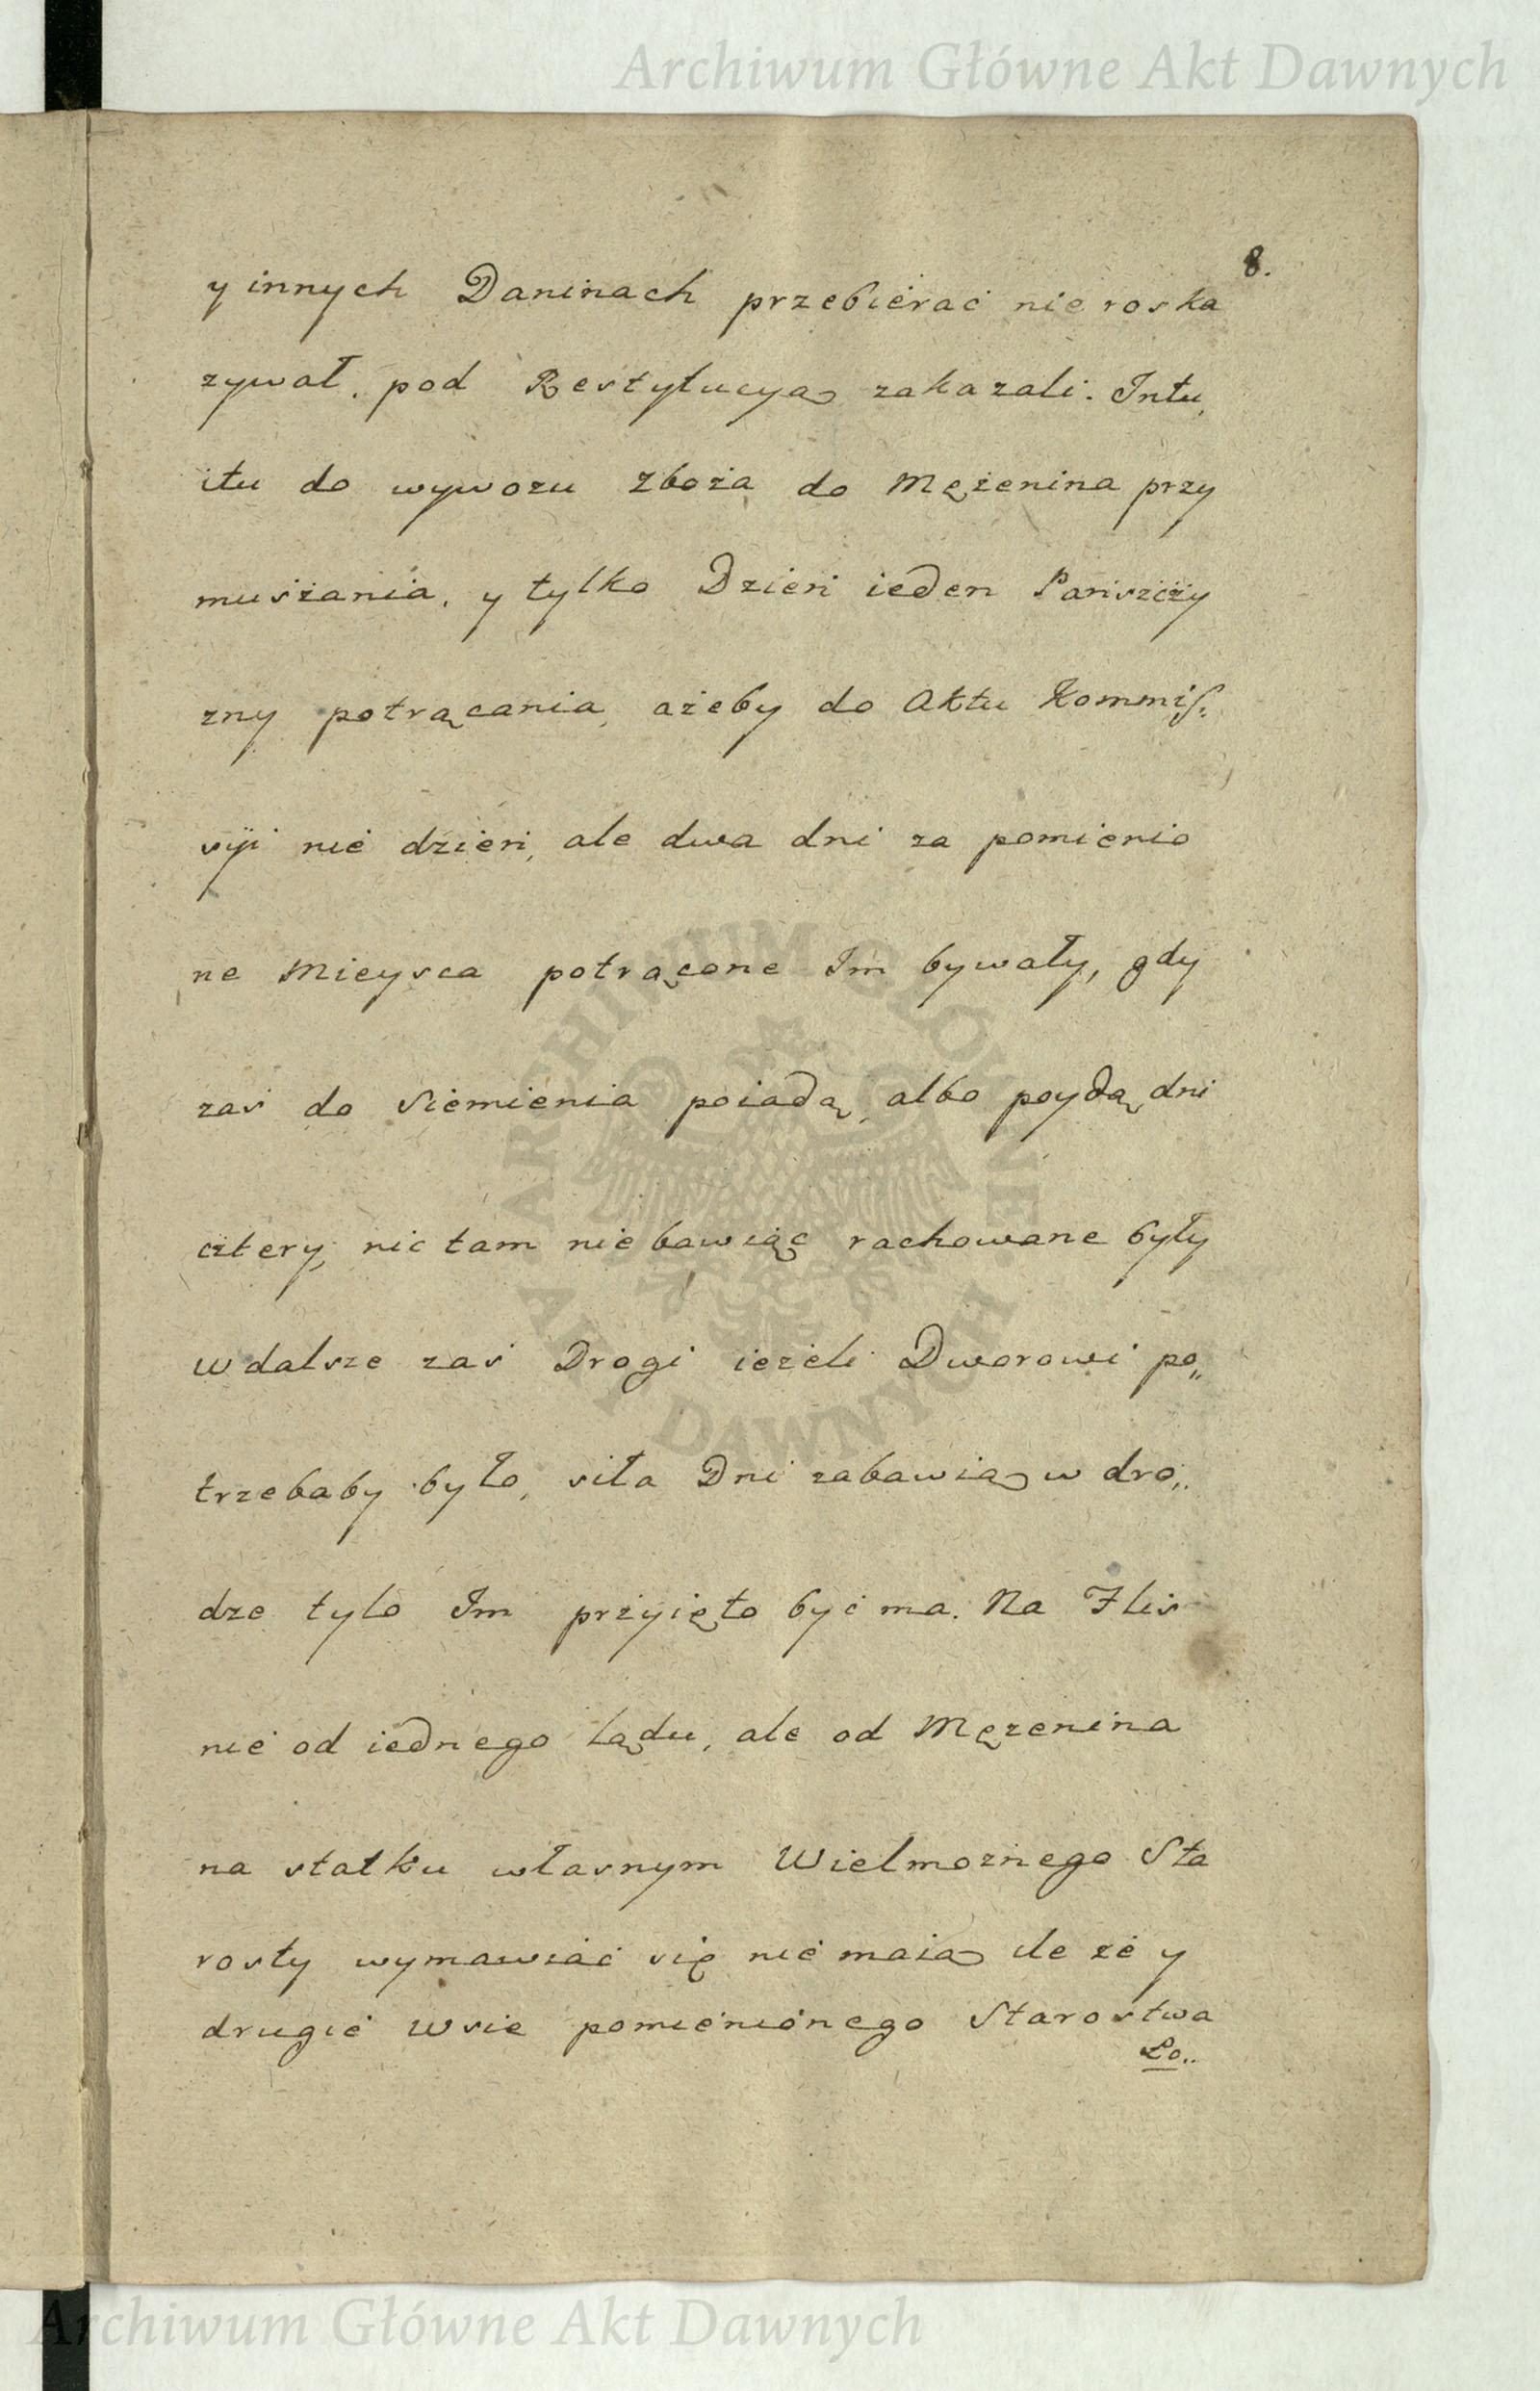 Archiwum Główne Akt Dawnych
8.
y innych Daninach przebierać nie roska
zywał, pod Restytucyą zakazali. Intu,
itu do wywozu zboża do Mężenina przy
muszania, y tylko Dzień ieden Pańszczy
zny potrącania, ażeby do Aktu Kommis:
syi nie dzień, ale dwa dni za pomienio
ne Mieysca potrącone Im bywały, gdy
zaś do Siemienia poiadą, albo poydą dni
cztery, nic tam nie bawiąc rachowane były
w dalsze zaś Drogi ieżeli Dworowi po„
trzebaby było, siła Dni zabawią w dro„
dze tylo Im przyięto być ma. Na Flis
nie od iednego Lądu, ale od Mężenina
na statku własnym Wielmożnego Sta
rosty wymawiać się nie maią ile że y
drugie Wsie pomienionego Starostwa
Ło..
ARCHIWUM GŁÓWNE AKT DAWNYCH
Archiwum Główne Akt Dawnych